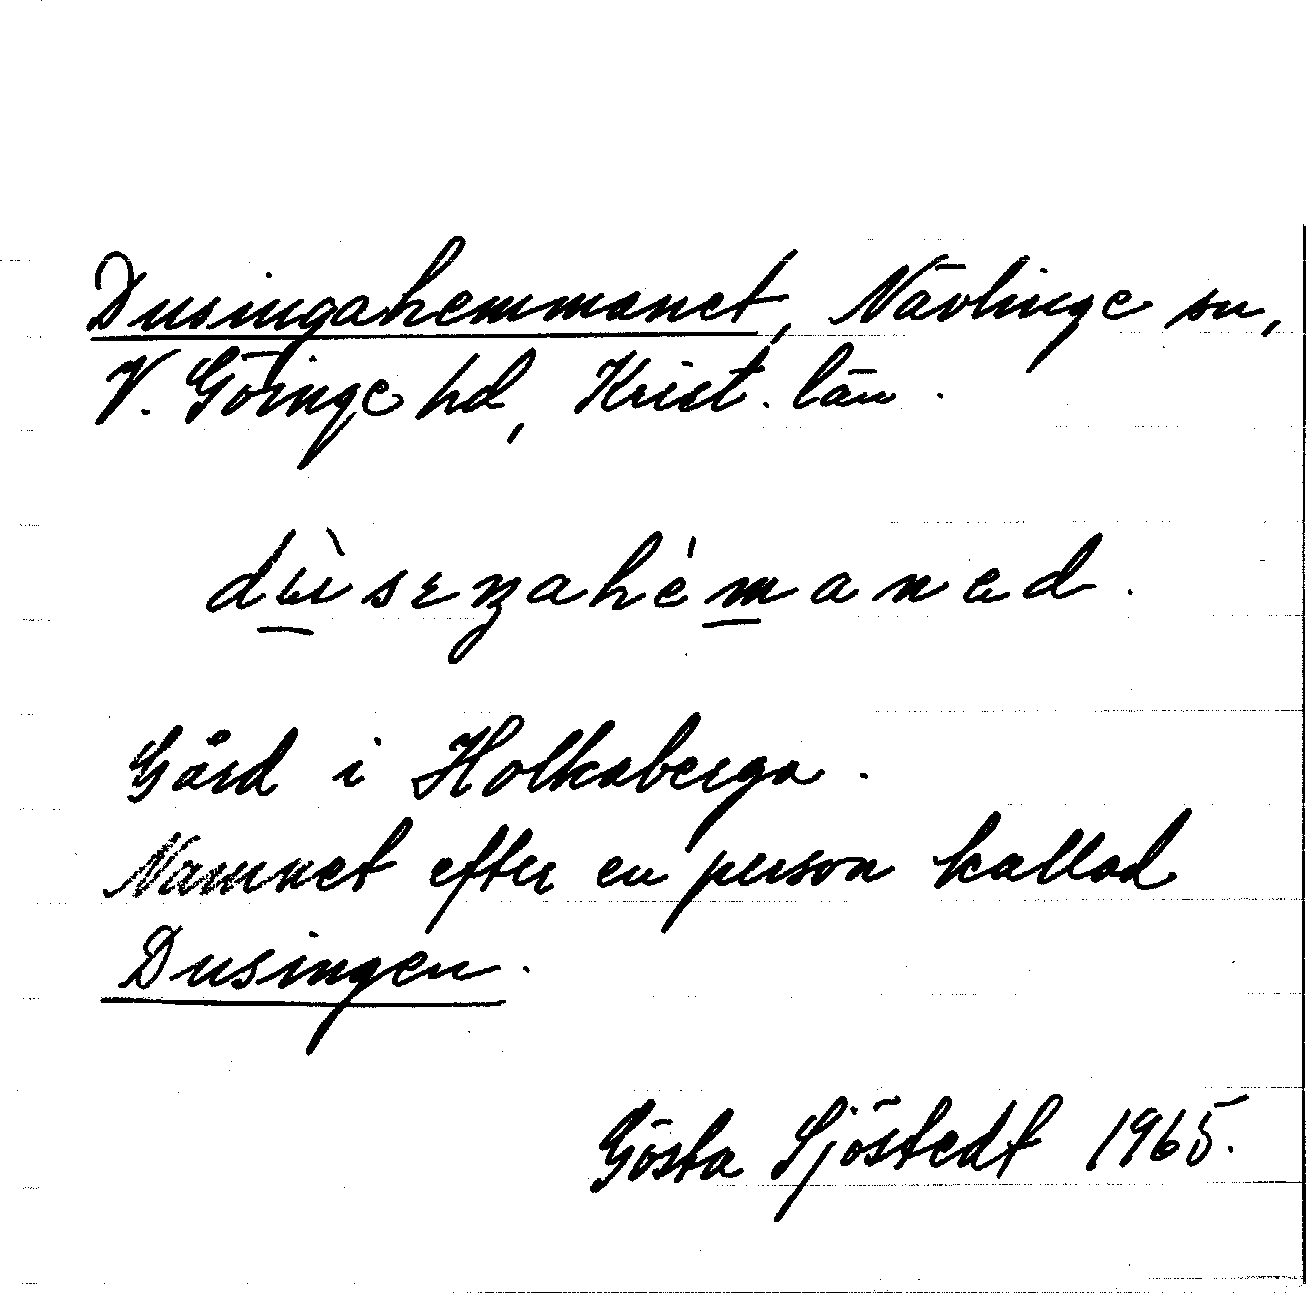 Dusingahemmanet, Nävlinge sn,
V. Göinge hd, Krist. län.
Gård i Holkaberga.
Namnet efter en person kallad
Dusingen.
Gösta Sjöstedt 1965.